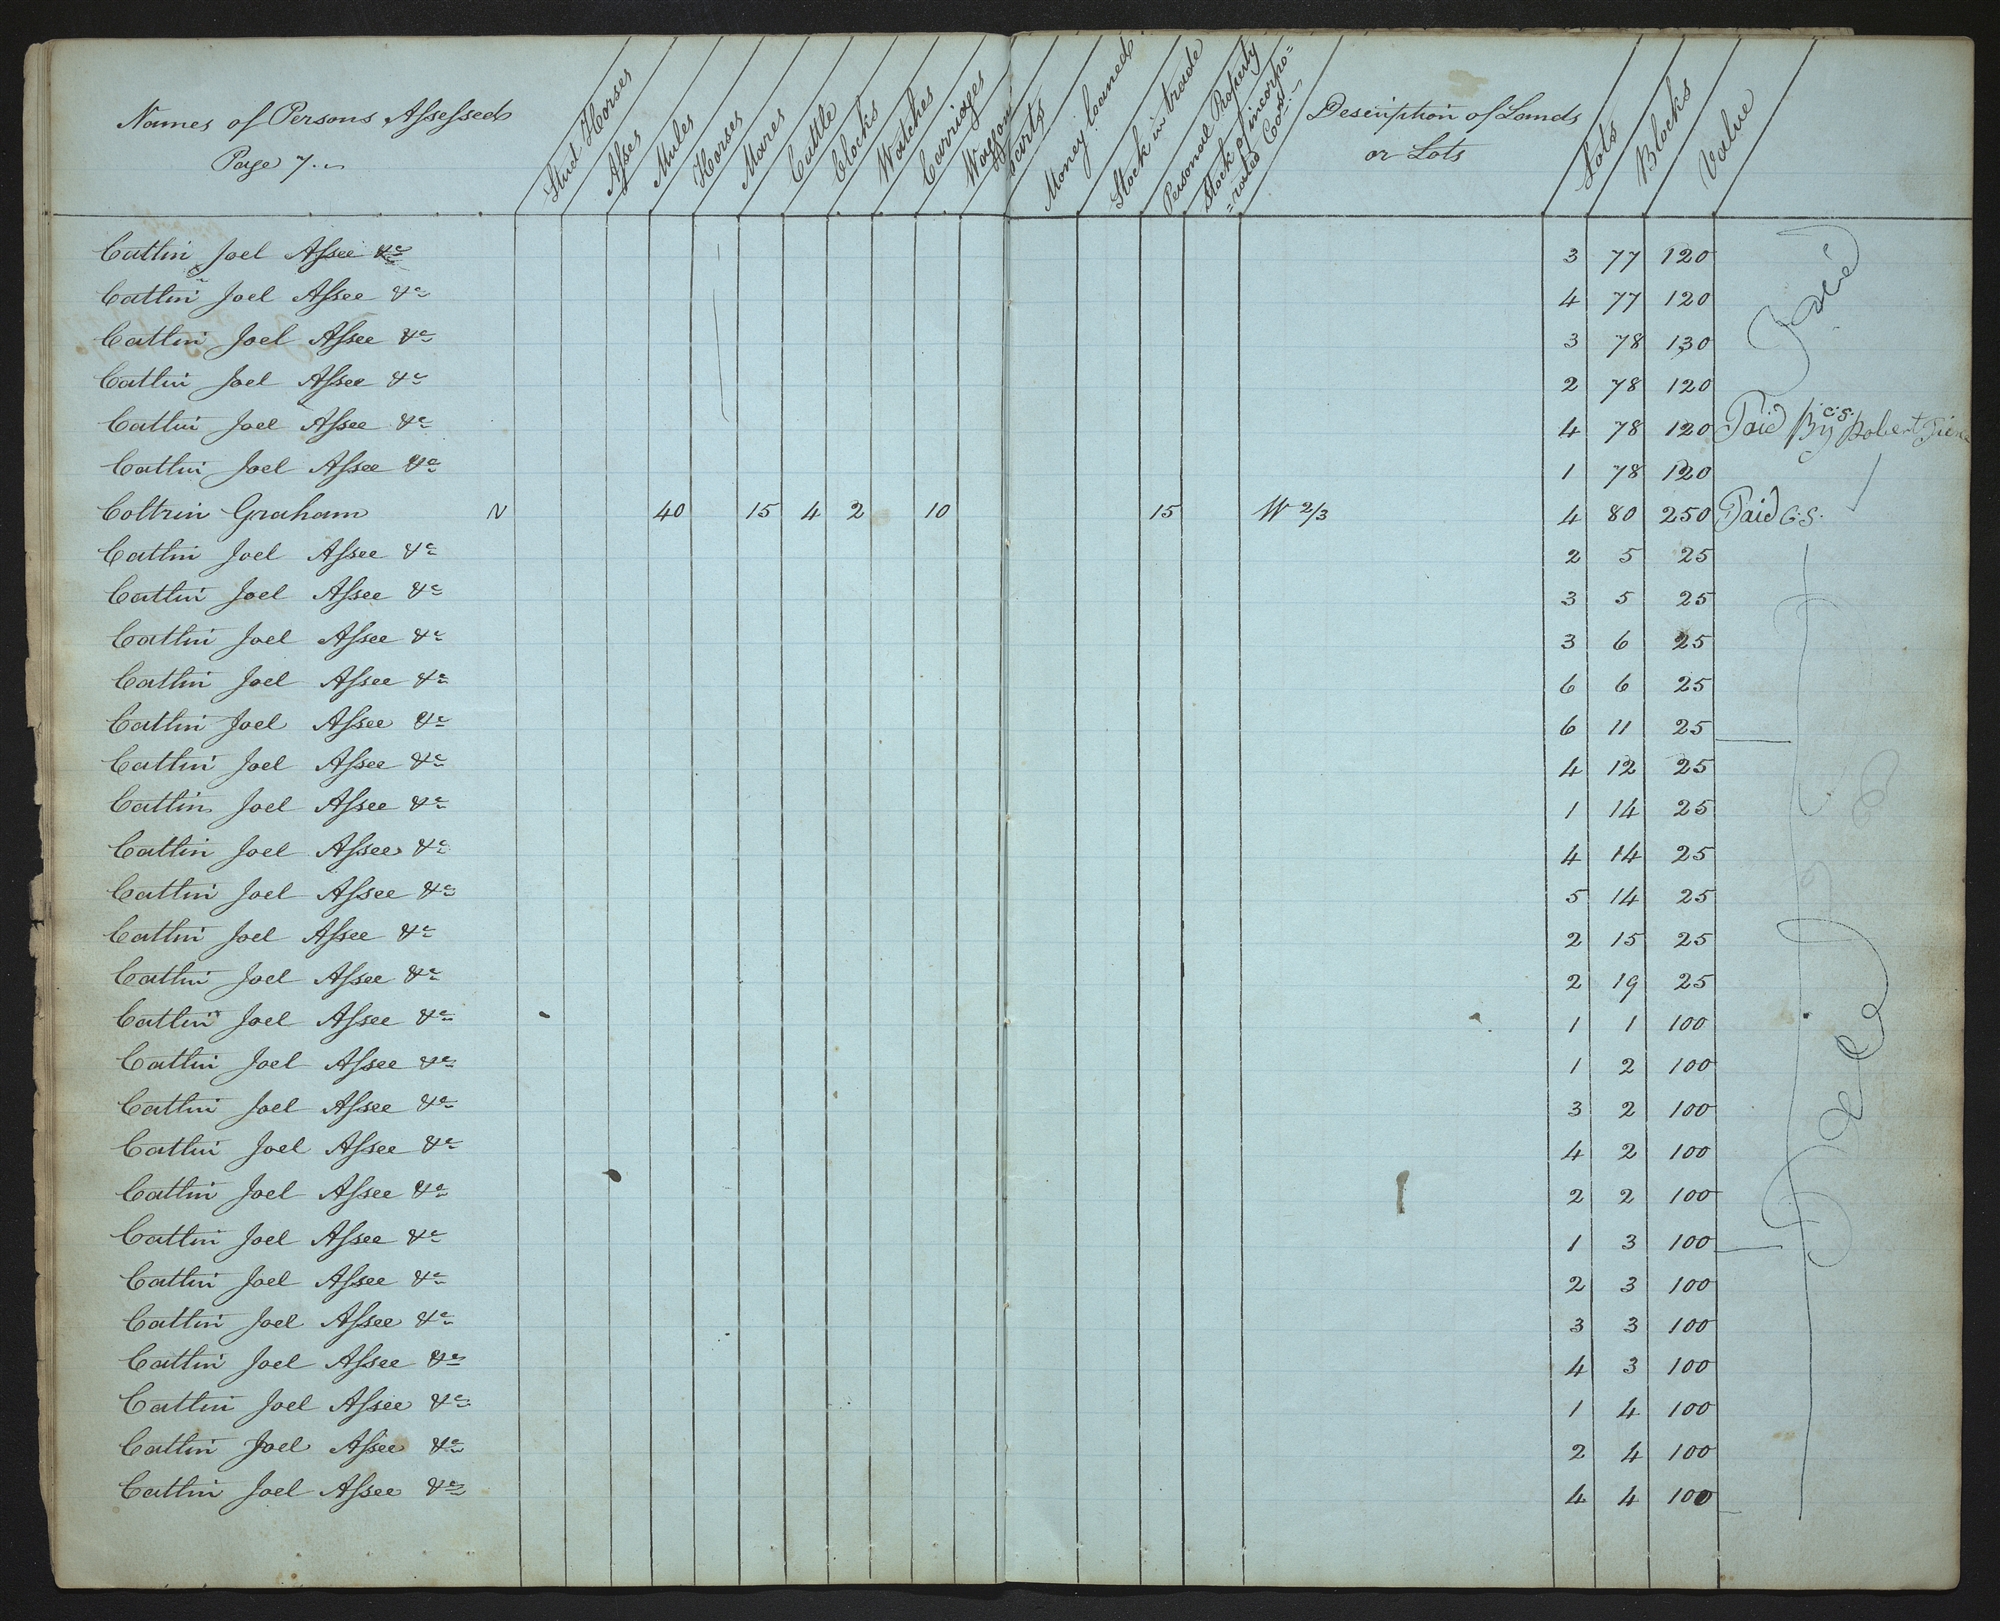 Names of Persons Assessed
Page 7.
Stud Horses
Asses
Mules
Horses
Mares
Cattle
Clocks
Watches
Carriages
Wagons
Carts
Money loaned
Stock in trade
Personal Property
Stock of incorpo=
=rated Cos.
Description of Lands
or Lots
Lots
Blocks
Value
Catlin Joel Assee &c 3 77 120
Catlin Joel Assee &c 4 77 120
Catlin Joel Assee &c 3 78 130
Catlin Joel Assee &c 2 78 120
Catlin Joel Assee &c 4 78 120 Paid By C.S. Robert
Catlin Joel Assee &c 1 78 120
Coltrin Graham N 40 15 4 2 10 15 W 2/3 4 80 250 Paid C.S.
Catlin Joel Assee &c 2 5 25
Catlin Joel Assee &c 3 5 25
Catlin Joel Assee &c 3 6 25
Catlin Joel Assee &c 6 6 25
Catlin Joel Assee &c 6 11 25
Catlin Joel Assee &c 4 12 25
Catlin Joel Assee &c 1 14 25
Catlin Joel Assee &c 4 14 25
Catlin Joel Assee &c 5 14 25
Catlin Joel Assee &c 2 15 25
Catlin Joel Assee &c 2 19 25
Catlin Joel Assee &c 1 1 100
Catlin Joel Assee &c 1 2 100
Catlin Joel Assee &c 3 2 100
Catlin Joel Assee &c 4 2 100
Catlin Joel Assee &c 2 2 100
Catlin Joel Assee &c 1 3 100
Catlin Joel Assee &c 2 3 100
Catlin Joel Assee &c 3 3 100
Catlin Joel Assee &c 4 3 100
Catlin Joel Assee &c 1 4 100
Catlin Joel Assee &c 2 4 100
Catlin Joel Assee &c 4 4 100
Paid